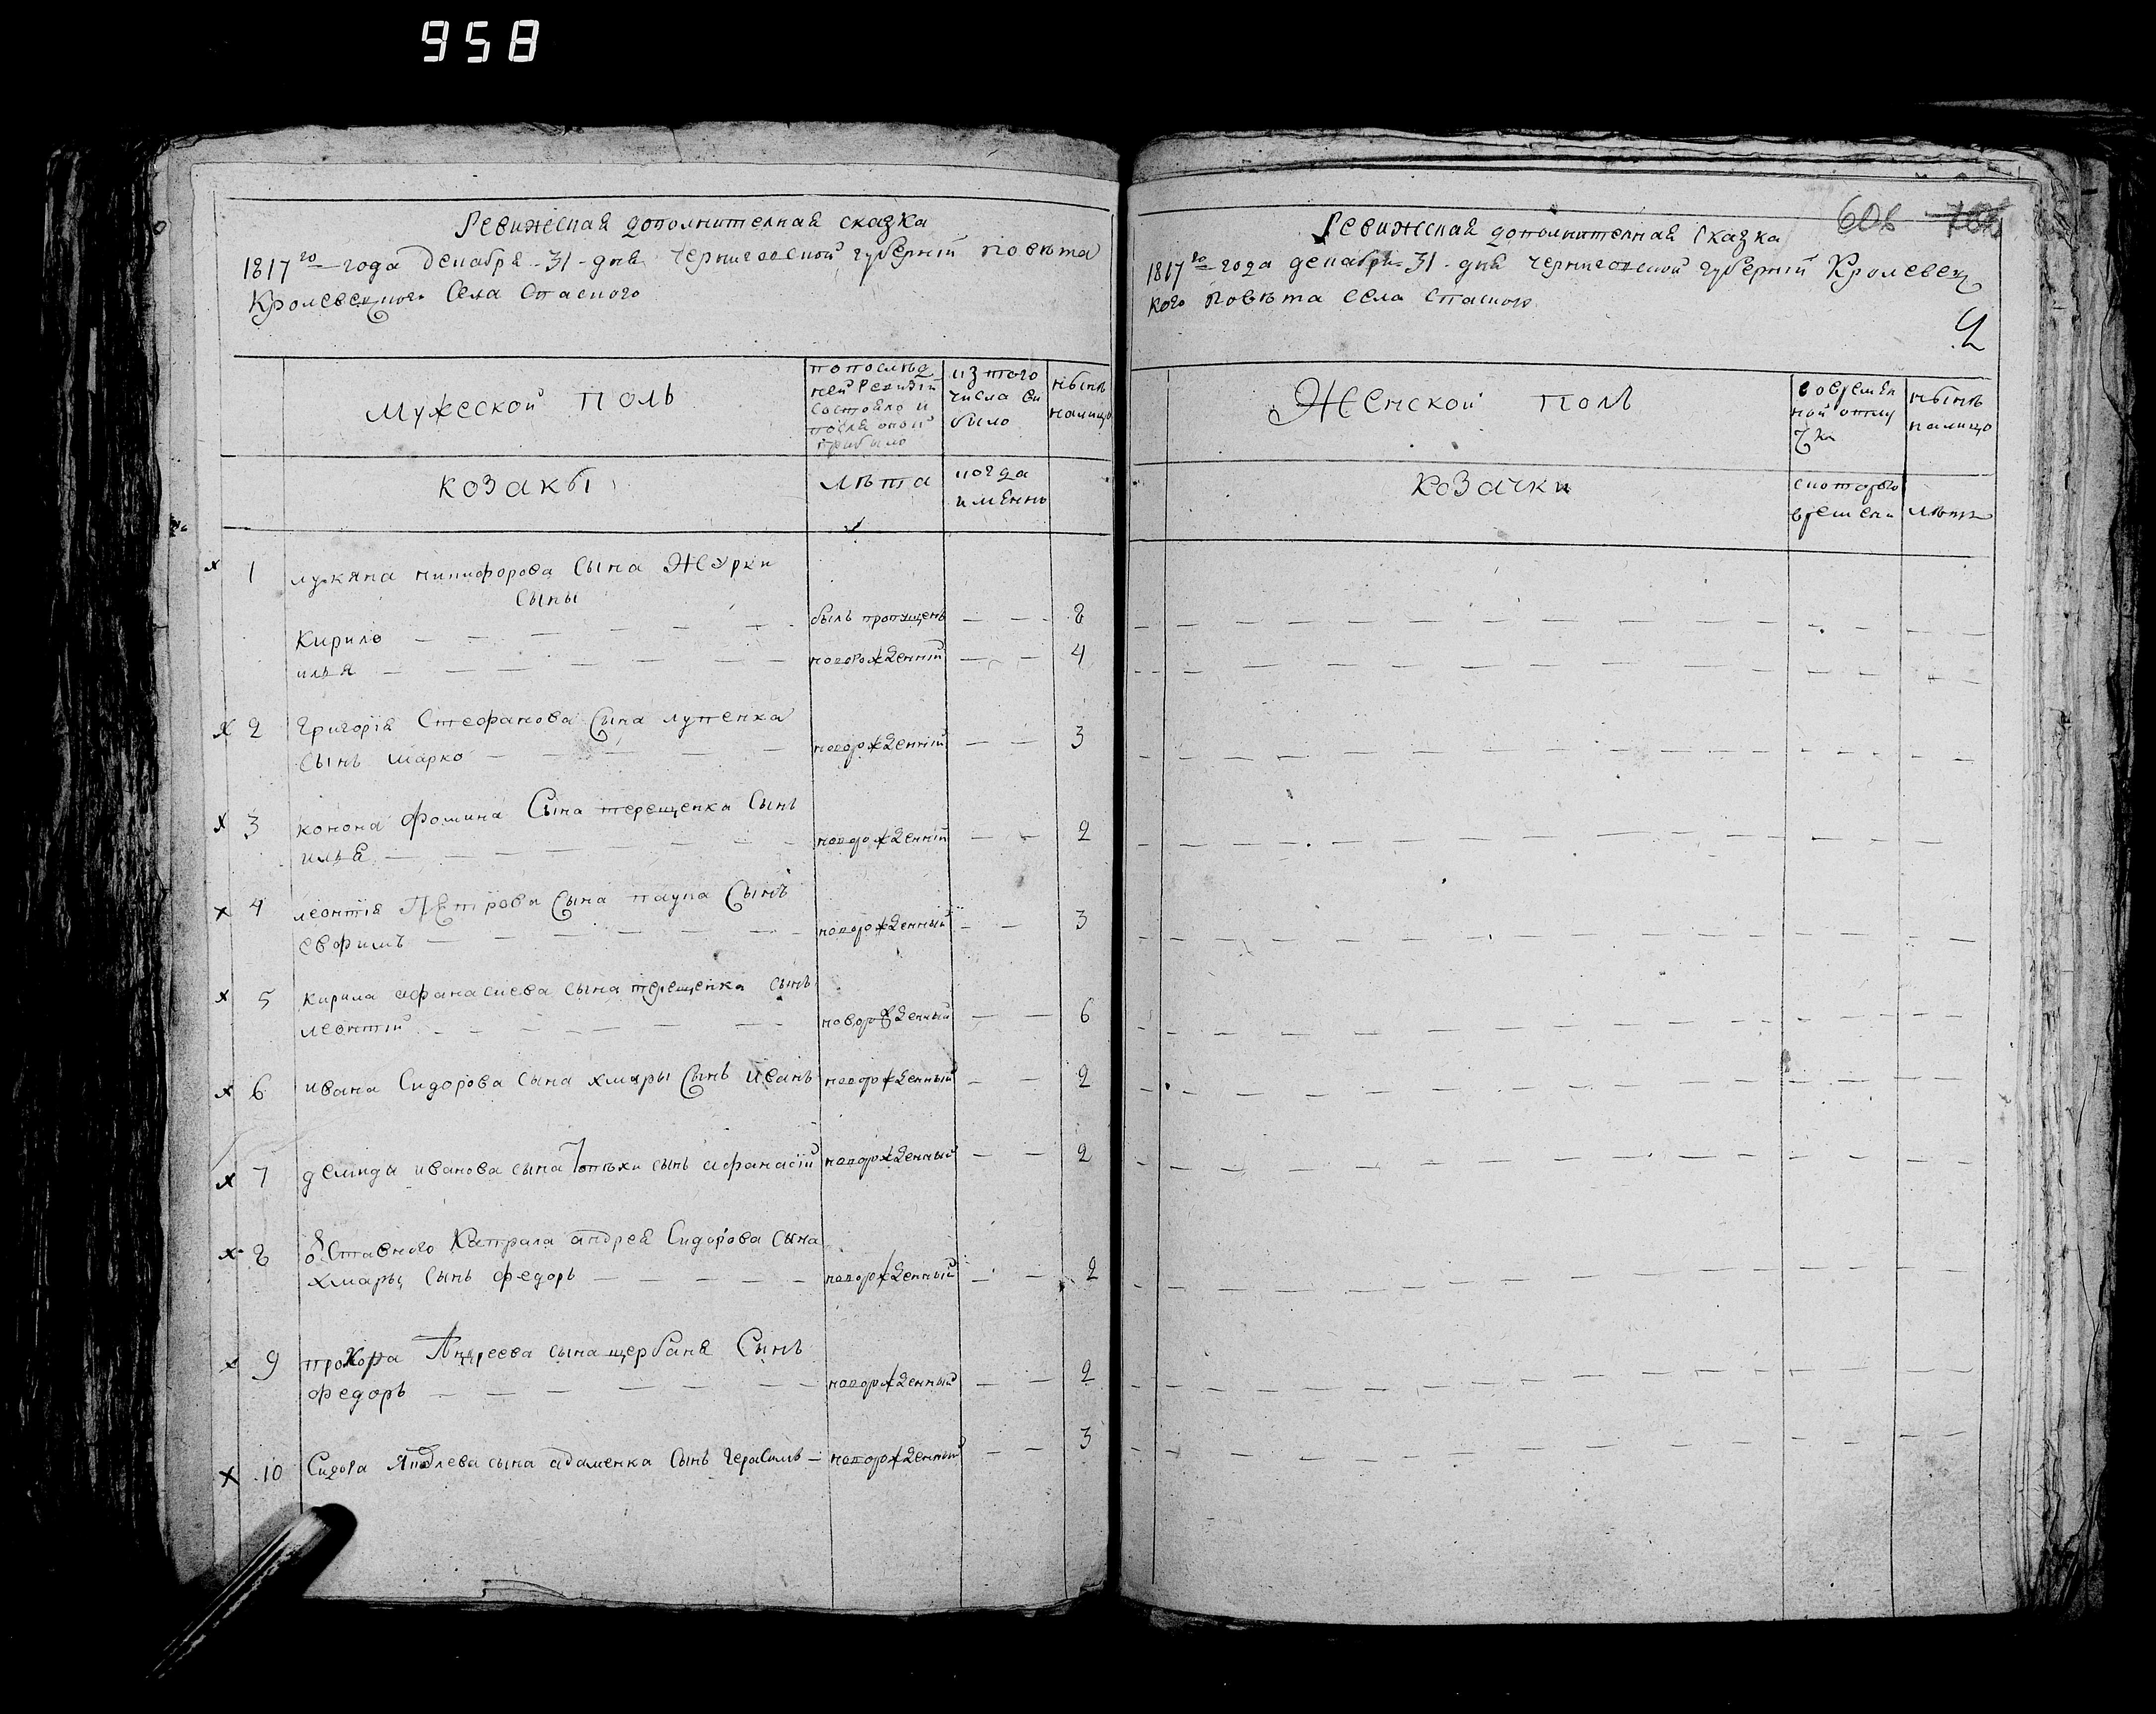 958
Ревижская дополнителная сказка
1817го года декабря 31 дня Черниговской губернїй повѣта
Кролевецкого Села Спаского
Мужеской полъ
по послѣд
ней Ревизїй
состояло и
после оной
прибыло
из того
числа вы
было
нынѣ
налицо
козаки
лѣта
когда
имѣнно
х 1 лукяна никифорова Сына Журки
Сыны
Кирило — былъ пропущенъ — 8
илья — новорожденнїй — 4
х 2 Григорїя Стефанова Сына лупенка
Сынъ марко — новорожденнїй — 3
х 3 конона Фомина Сына терещенка Сынъ
илья — новорожденнїй — 2
х 4 леонтїя Петрова Сына паука Сынъ
евфимъ — новорожденный — 3
х 5 кирила афанасиева сына терещенка сынъ
леонтїй — новорожденный — 6
х 6 ивана Сидорова Сына хмары Сынъ иванъ новорожденный — 2
х 7 демида иванова сына сынъ афанасїй новорожденный — 2
х 8 отставного Капрала андрея Сидорова Сына
хмары Сынъ федоръ — новорожденный — 2
х 9 прохора Андреева сына щербаня Сынъ
федоръ — новорожденный — 2
х 10 Сидора сына адаменка Сынъ Герасимъ — новорожденный — 3
Ревижская дополнителная Сказка
608
1817го года декабря 31 дня черниговской губернїй Кролевец
кого повѣта села спаского
2
Женской полъ
во времен
ной отлу
чке
нынѣ
налицо
козачки
с которого
времени
лѣта